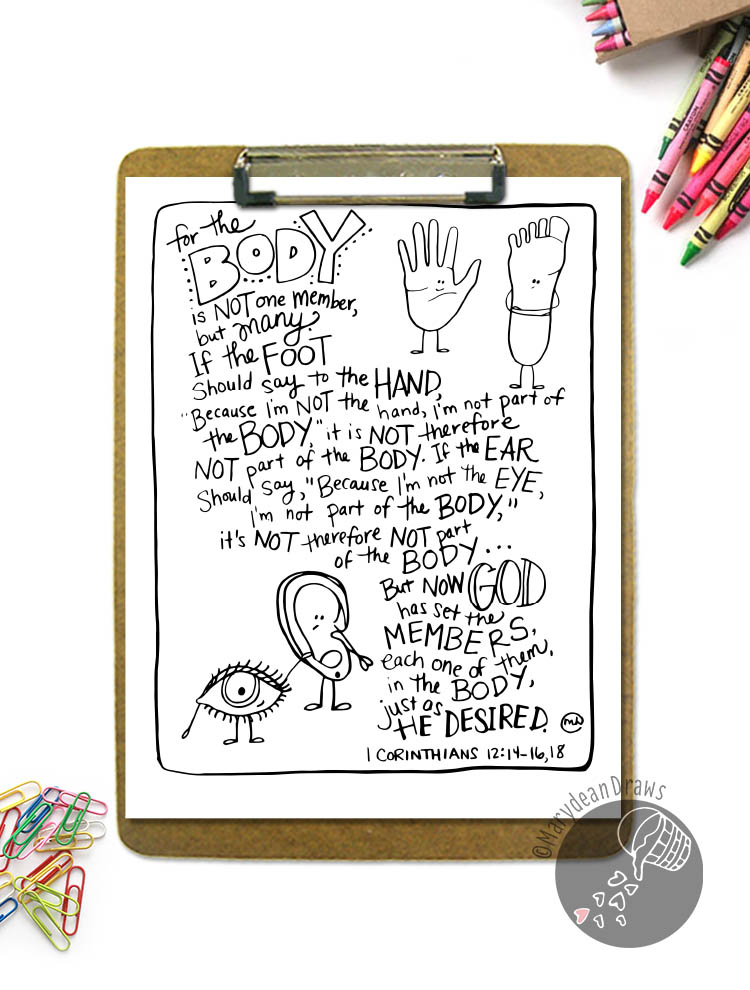 for the
BODY
is NOT one member,
but many.
If the FOOT
Should say to the HAND,
"Because I'm NOT the hand, I'm not part of
the BODY," it is NOT therefore
NOT part of the BODY. If the EAR
Should say, "Because I'm not the EYE,
I'm not part of the BODY,"
it's NOT therefore NOT part
of the BODY...
But NOW GOD
has set the
MEMBERS,
each one of them,
in the BODY,
just as
HE DESIRED.
MW
1 CORINTHIANS 12:14-16,18
©MarydeanDraws